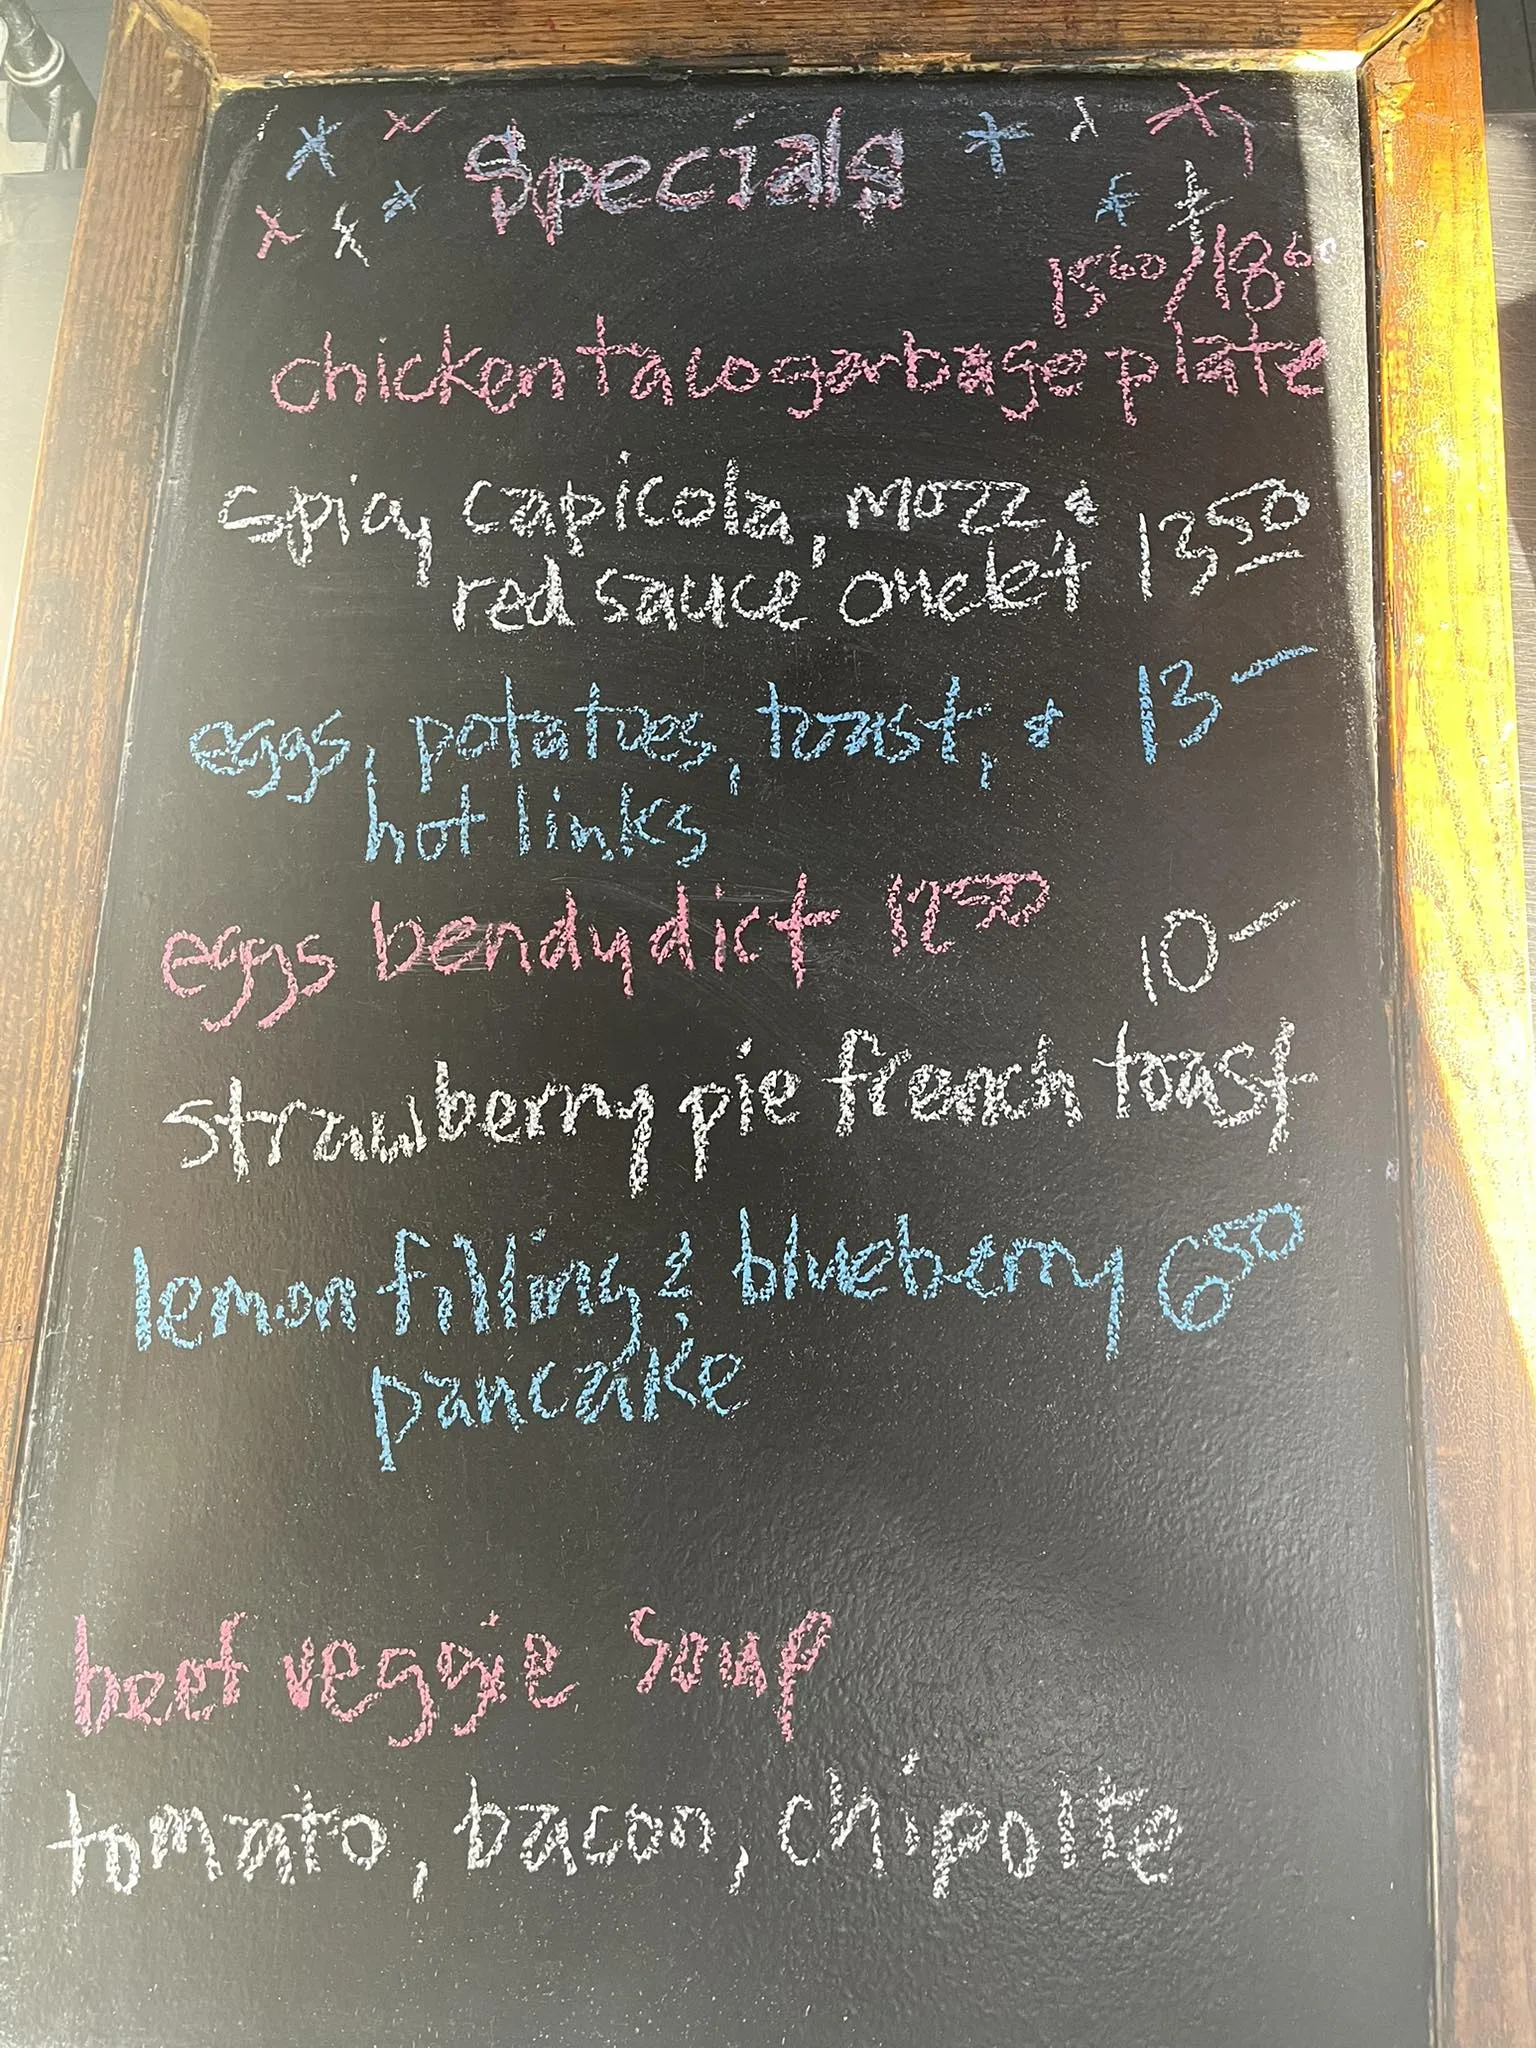 Specials
15⁶⁰/18⁶⁰
chicken taco garbage plate
spicy capicola, mozz &
red sauce omelet 13⁵⁰
eggs, potatoes, toast, & 13—
hot links
eggs bendydict 12⁵⁰
10—
strawberry pie french toast
lemon filling & blueberry 6⁵⁰
pancake
beef veggie soup
tomato, bacon, chipolte